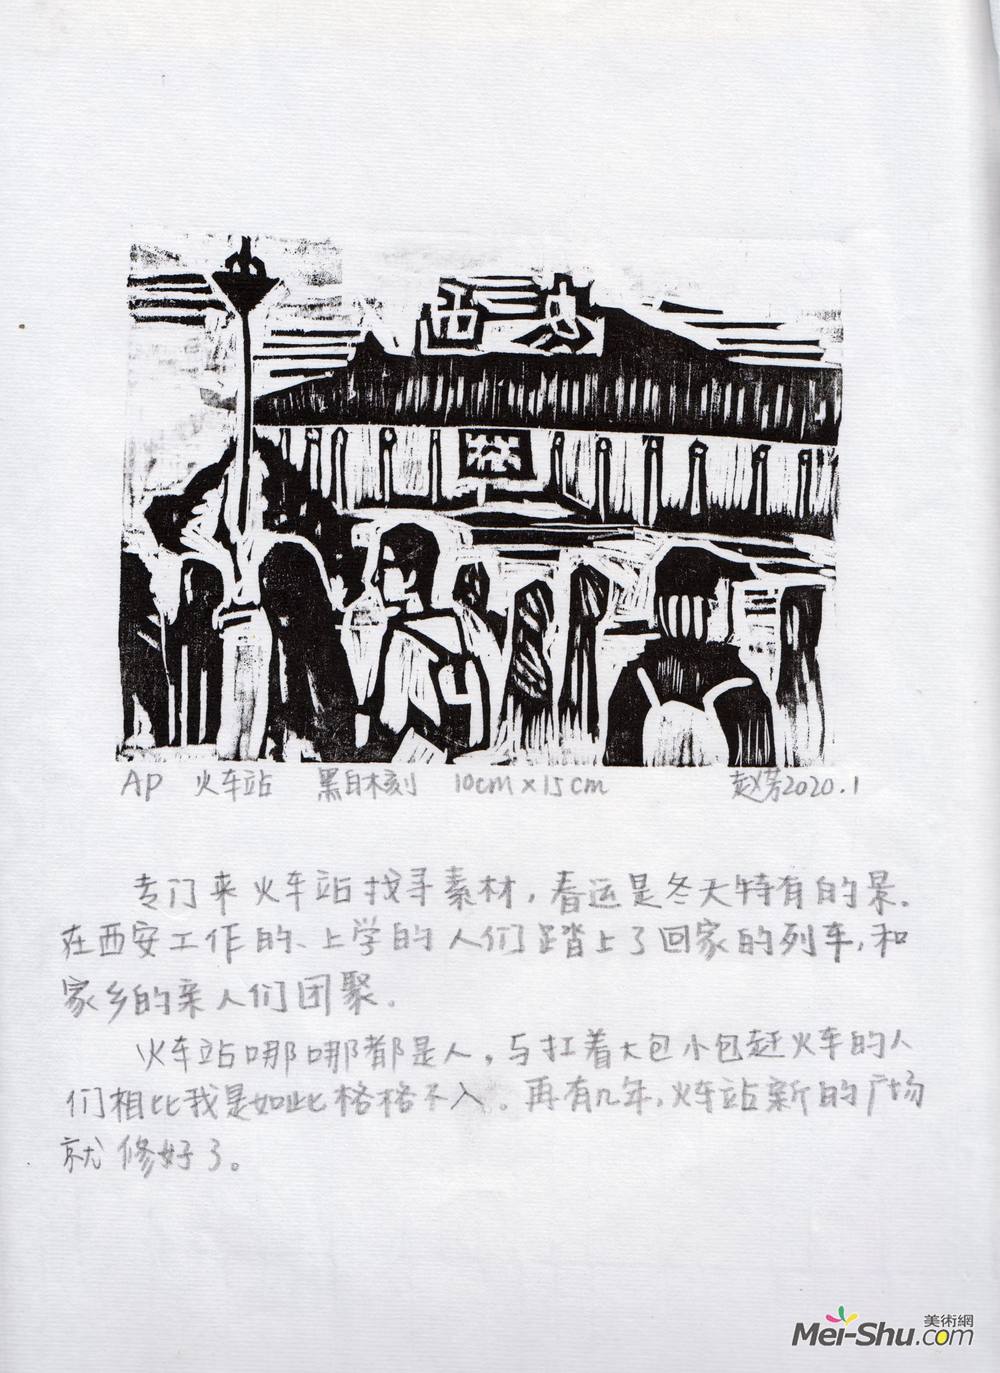 西安
AP 火车站 黑白木刻 10cm×15cm 赵芳2020.1
专门来火车站找寻素材，春运是冬天特有的景。
在西安工作的、上学的人们踏上了回家的列车，和
家乡的亲人们团聚。
火车站哪哪都是人，与扛着大包小包赶火车的人
们相比我是如此格格不入。再有几年，火车站新的广场
就修好了。
美術網
Mei-Shu.com